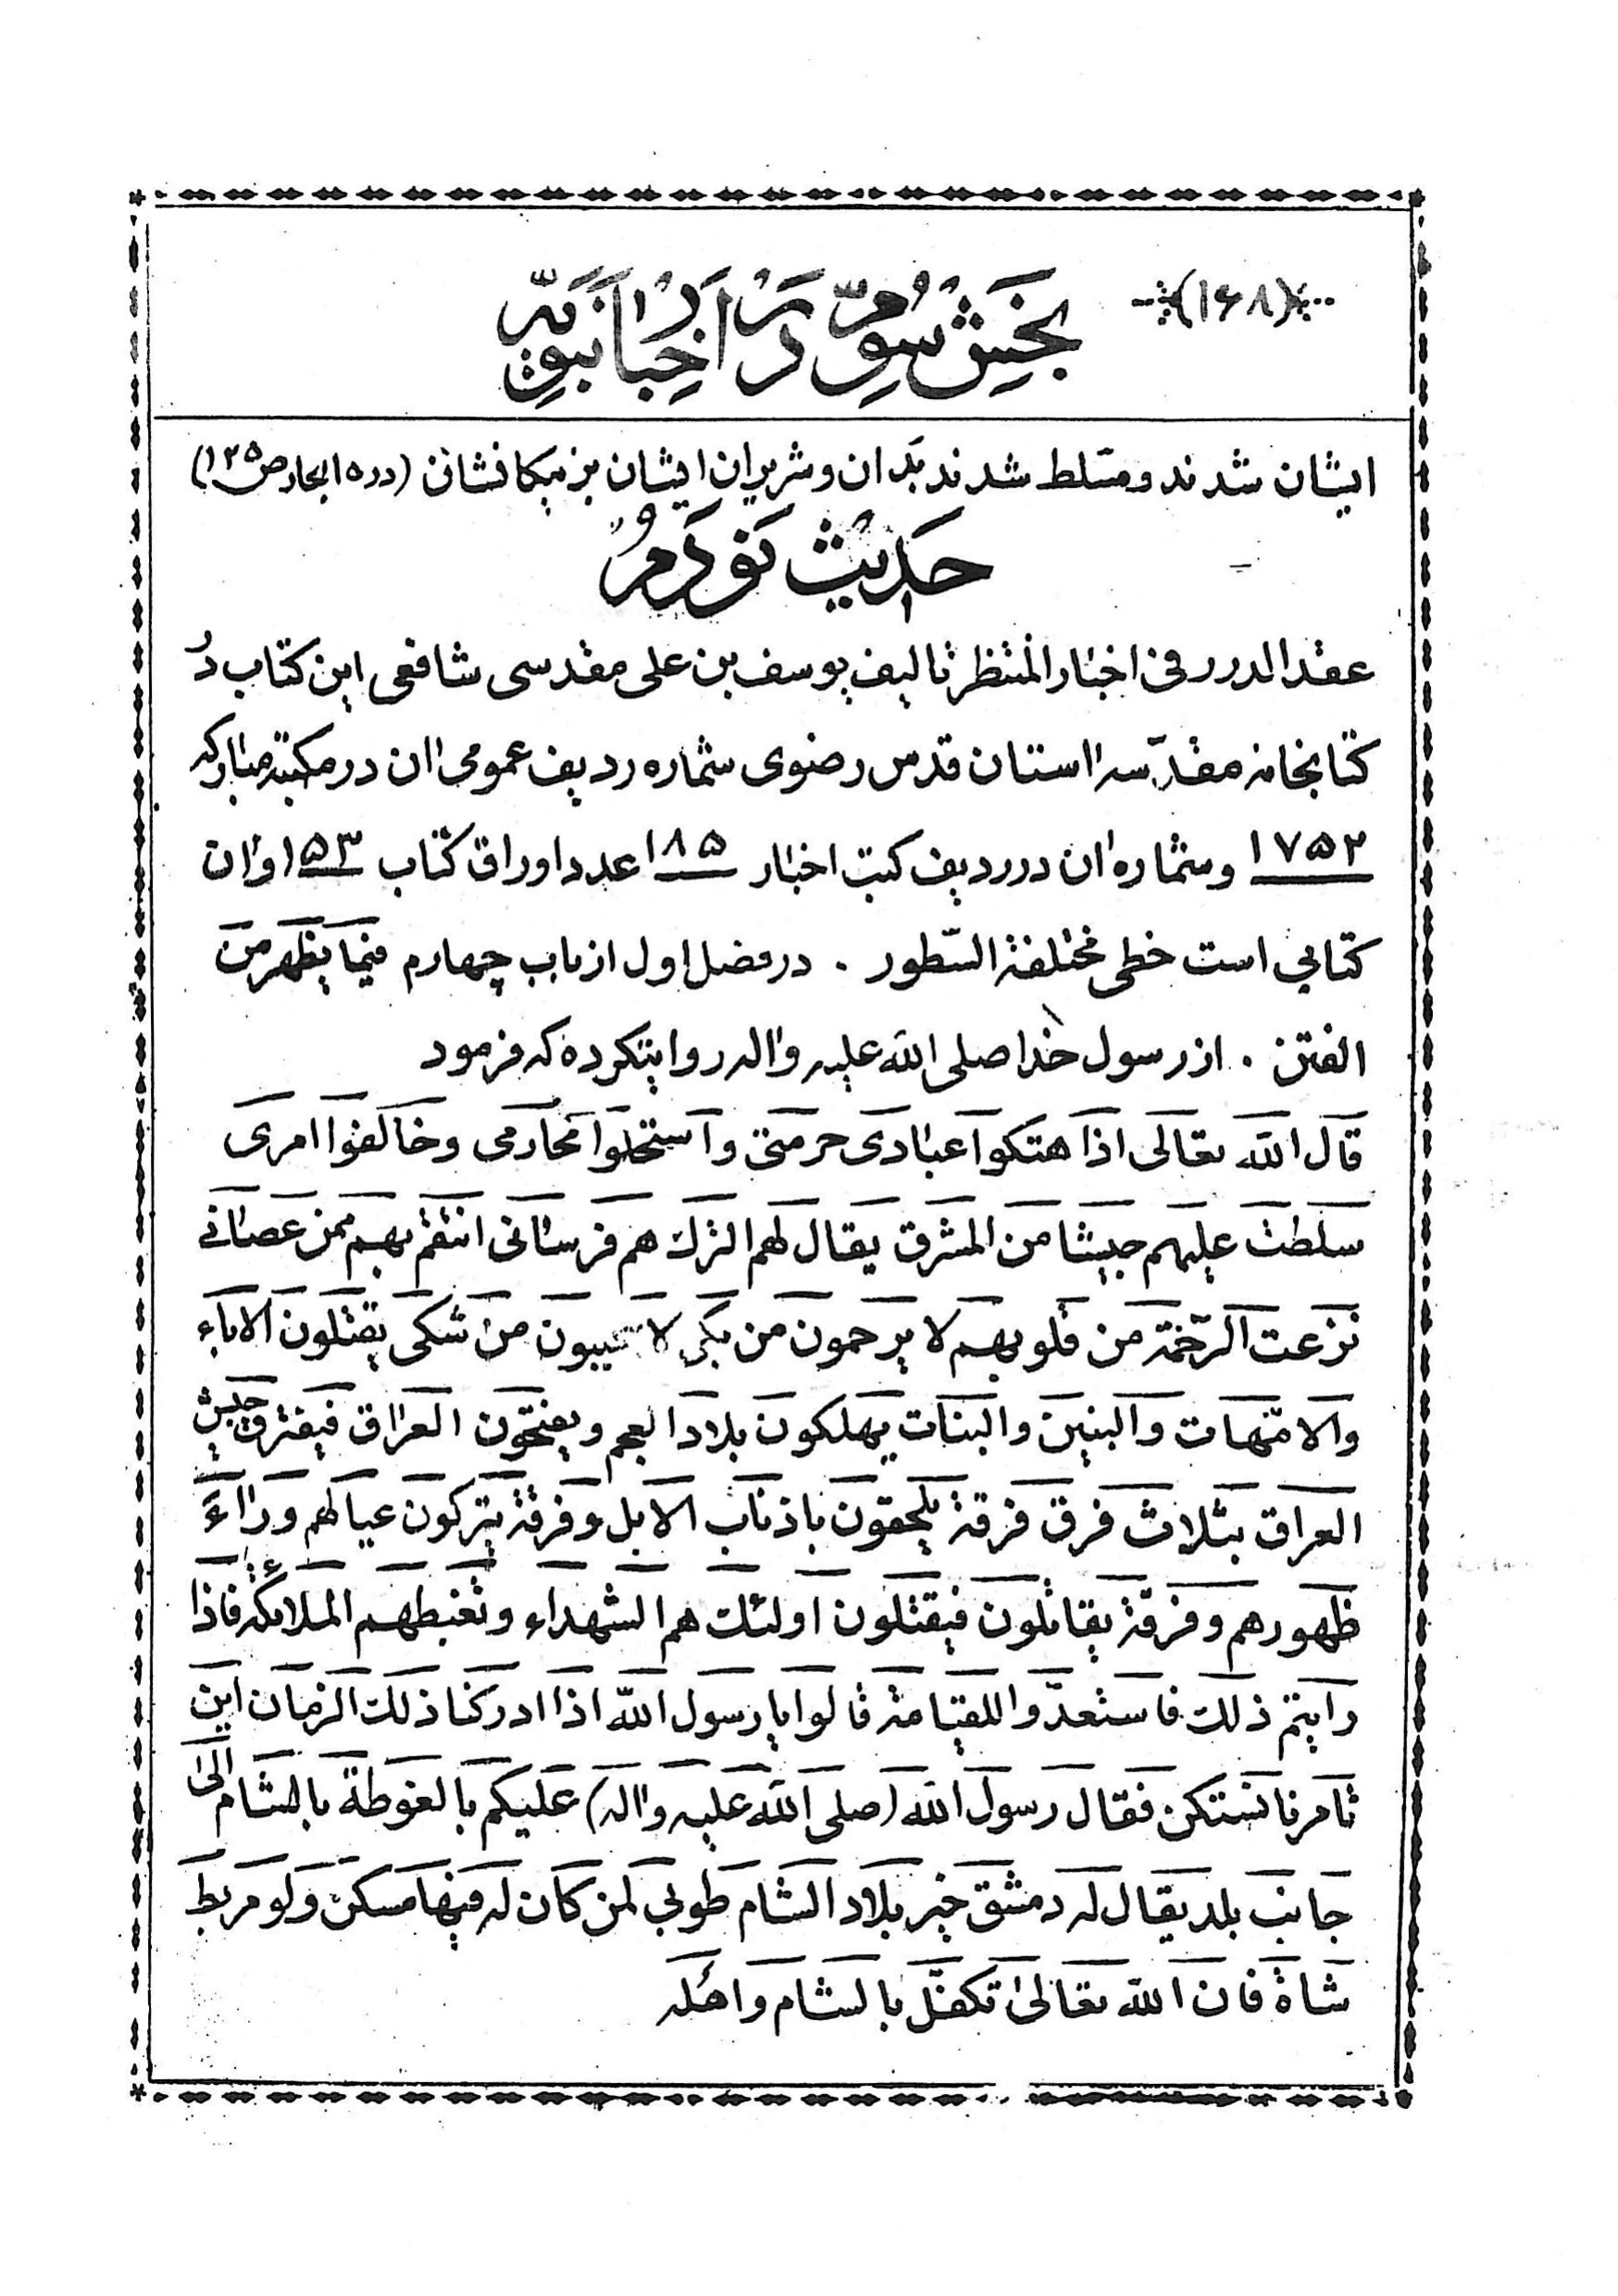 (۱۶۸)
بخش سوم در اخبار نبویه
ایشان شدند و مسلط شدند بدان و شریران ایشان بر نیکانشان (دره البحار ص ۱۲۵)
حدیث نودم
عقد الدرر فی اخبار المنتظر تالیف یوسف بن علی مقدسی شافعی این کتاب در
کتابخانه مقدّسه استان قدس رضوی شماره ردیف عمومی ان در مکتبه مبارکه
۱۷۵۲ و شماره ان در ردیف کتب اخبار ۱۸۵ عدد اوراق کتاب ۱۵۳ و ان
کتابی است خطی مختلفة السّطور . در فصل اول از باب چهارم فیما یظهر من
الفتن . از رسول خدا صلی الله علیه واله روایتکرده که فرمود
قال الله تعالی اذا هتکوا عبادی حرمتی و استحلوا محارمی و خالفوا امری
سلطت علیهم جیشا من المشرق یقال لهم الترک هم فرسانی انتقم بهم ممن عصانی
نزعت الرّحمة من قلوبهم لا یرحمون من بکی لا یجیبون من شکی یقتلون الاباء
والامّهات والبنین والبنات یهلکون بلاد العجم و یفتحون العراق فیفترق جیش
العراق بثلاث فرق فرقة یلحقون باذناب الابل و فرقة یترکون عیالهم وراء
ظهورهم و فرقة یقاتلون فیقتلون اولئك هم الشهداء و تغبطهم الملائکه فاذا
رایتم ذلك فاستعدّوا للقیامة قالوا یا رسول الله اذا ادرکنا ذلك الزمان این
تامرنا نستکن فقال رسول الله (صلی الله علیه واله) علیکم بالغوطة بالشام الی
جانب بلد یقال له دمشق خیر بلاد الشام طوبی لمن کان له فیها مسکن ولو مربط
شاة فان الله تعالی تکفّل بالشام واهله